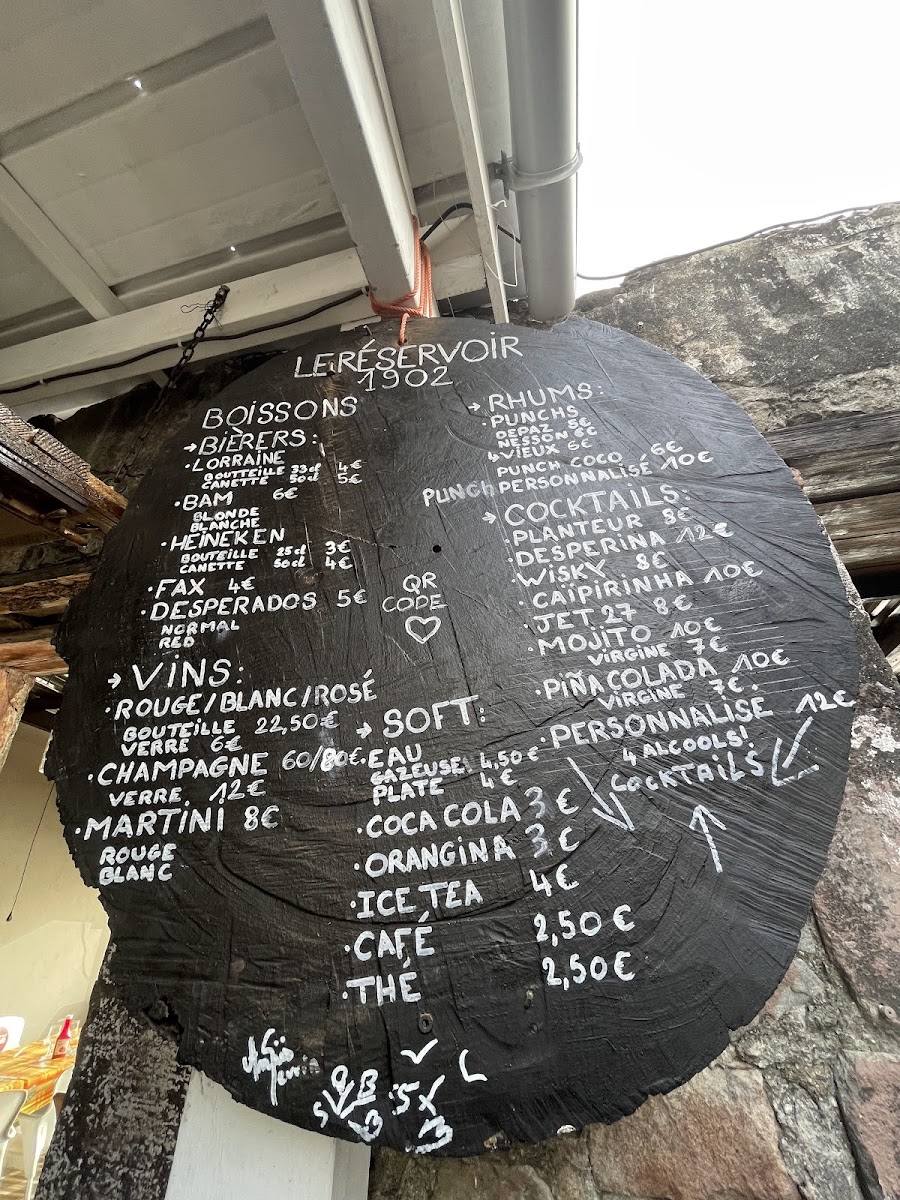 LE RÉSERVOIR
1902
BOISSONS
→ BIÈRERS:
· LORRAINE
BOUTTEILLE 33cl 4€
CANETTE 50cl 5€
· BAM 6€
BLONDE
BLANCHE
· HEINEKEN
BOUTEILLE 25cl 3€
CANETTE 50cl 4€
· FAX 4€
· DESPERADOS 5€
NORMAL
RED
→ VINS:
· ROUGE/BLANC/ROSÉ
BOUTEILLE 22,50€
VERRE 6€
· CHAMPAGNE 60/80€
VERRE 12€
· MARTINI 8€
ROUGE
BLANC
QR
CODE
→ SOFT:
· EAU
GAZEUSE 4,50€
PLATE 4€
· COCA COLA 3€
· ORANGINA 3€
· ICE TEA 4€
· CAFÉ 2,50€
· THÉ 2,50€
→ RHUMS:
· PUNCHS
DEPAZ 5€
NESSON 6€
VIEUX 6€
PUNCH COCO 6€
PUNCH PERSONNALISÉ 10€
→ COCKTAILS:
· PLANTEUR 8€
· DESPERINA 12€
· WISKY 8€
· CAÏPIRINHA 10€
· JET 27 8€
· MOJITO 10€
VIRGINE 7€
· PIÑA COLADA 10€
VIRGINE 7€
· PERSONNALISÉ 12€
4 ALCOOLS!
COCKTAILS